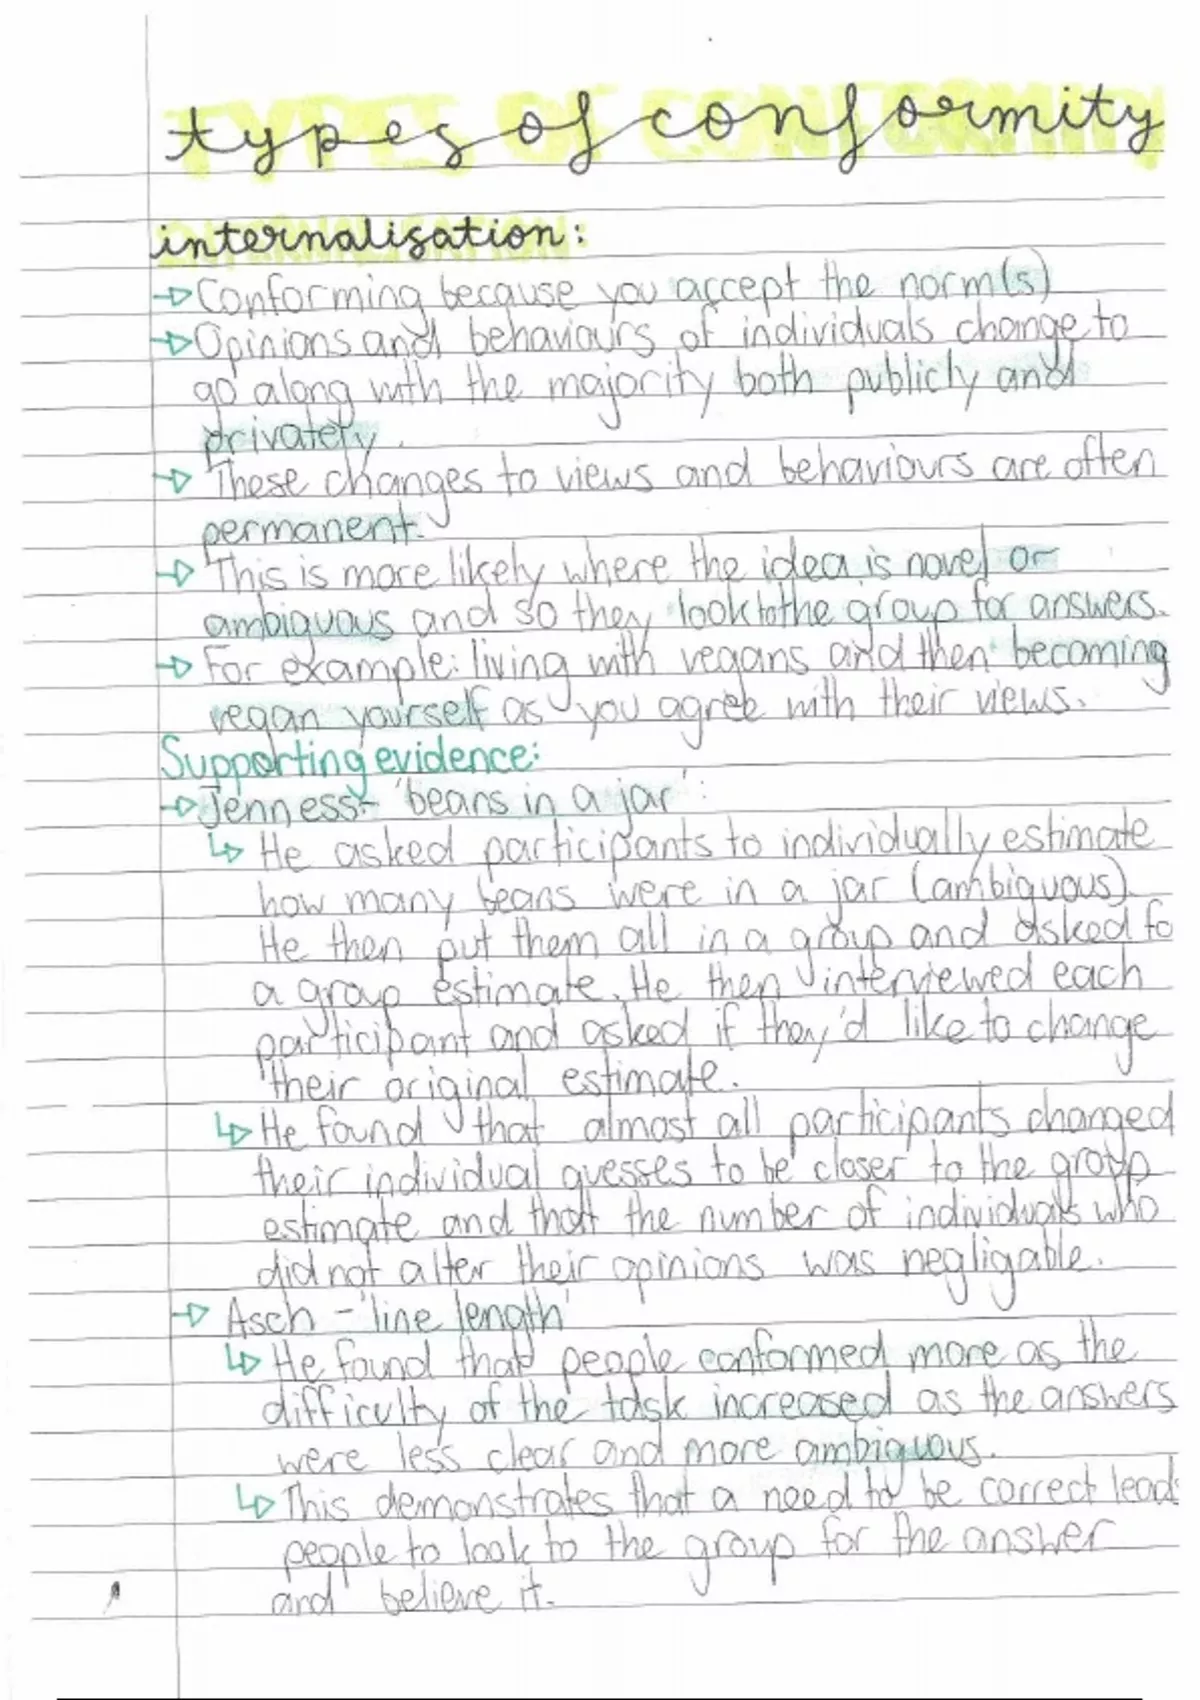 types of conformity
internalisation:
Conforming because you accept the norm(s)
Opinions and behaviours of individuals change to
go along with the majority both publicly and
privately.
These changes to views and behaviours are often
permanent.
This is more likely where the idea is novel or
ambiguous and so they look to the group for answers.
For example: living with vegans and then becoming
vegan yourself as you agree with their views.
Supporting evidence:
Jenness - 'beans in a jar':
He asked participants to individually estimate
how many beans were in a jar (ambiguous).
He then put them all in a group and asked fo
a group estimate. He then interviewed each
participant and asked if they'd like to change
their original estimate.
He found that almost all participants changed
their individual guesses to be closer to the group
estimate and that the number of individuals who
did not alter their opinions was negligable.
Asch - 'line length'
He found that people conformed more as the
difficulty of the task increased as the answers
were less clear and more ambiguous.
This demonstrates that a need to be correct leads
people to look to the group for the answer
and believe it.